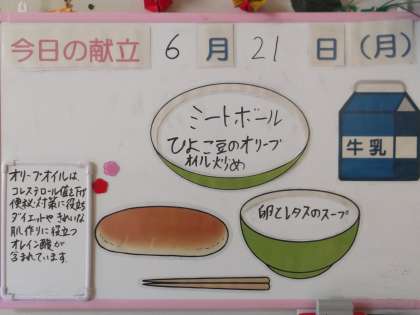 今日の献立 6月21日(月)
ミートボール
ひよこ豆のオリーブ
オイル炒め
牛乳
オリーブオイルは
コレステロール値を下げ
便秘対策に役立ち
ダイエットやきれいな
肌作りに役立つ
オレイン酸が
含まれています。
卵とレタスのスープ